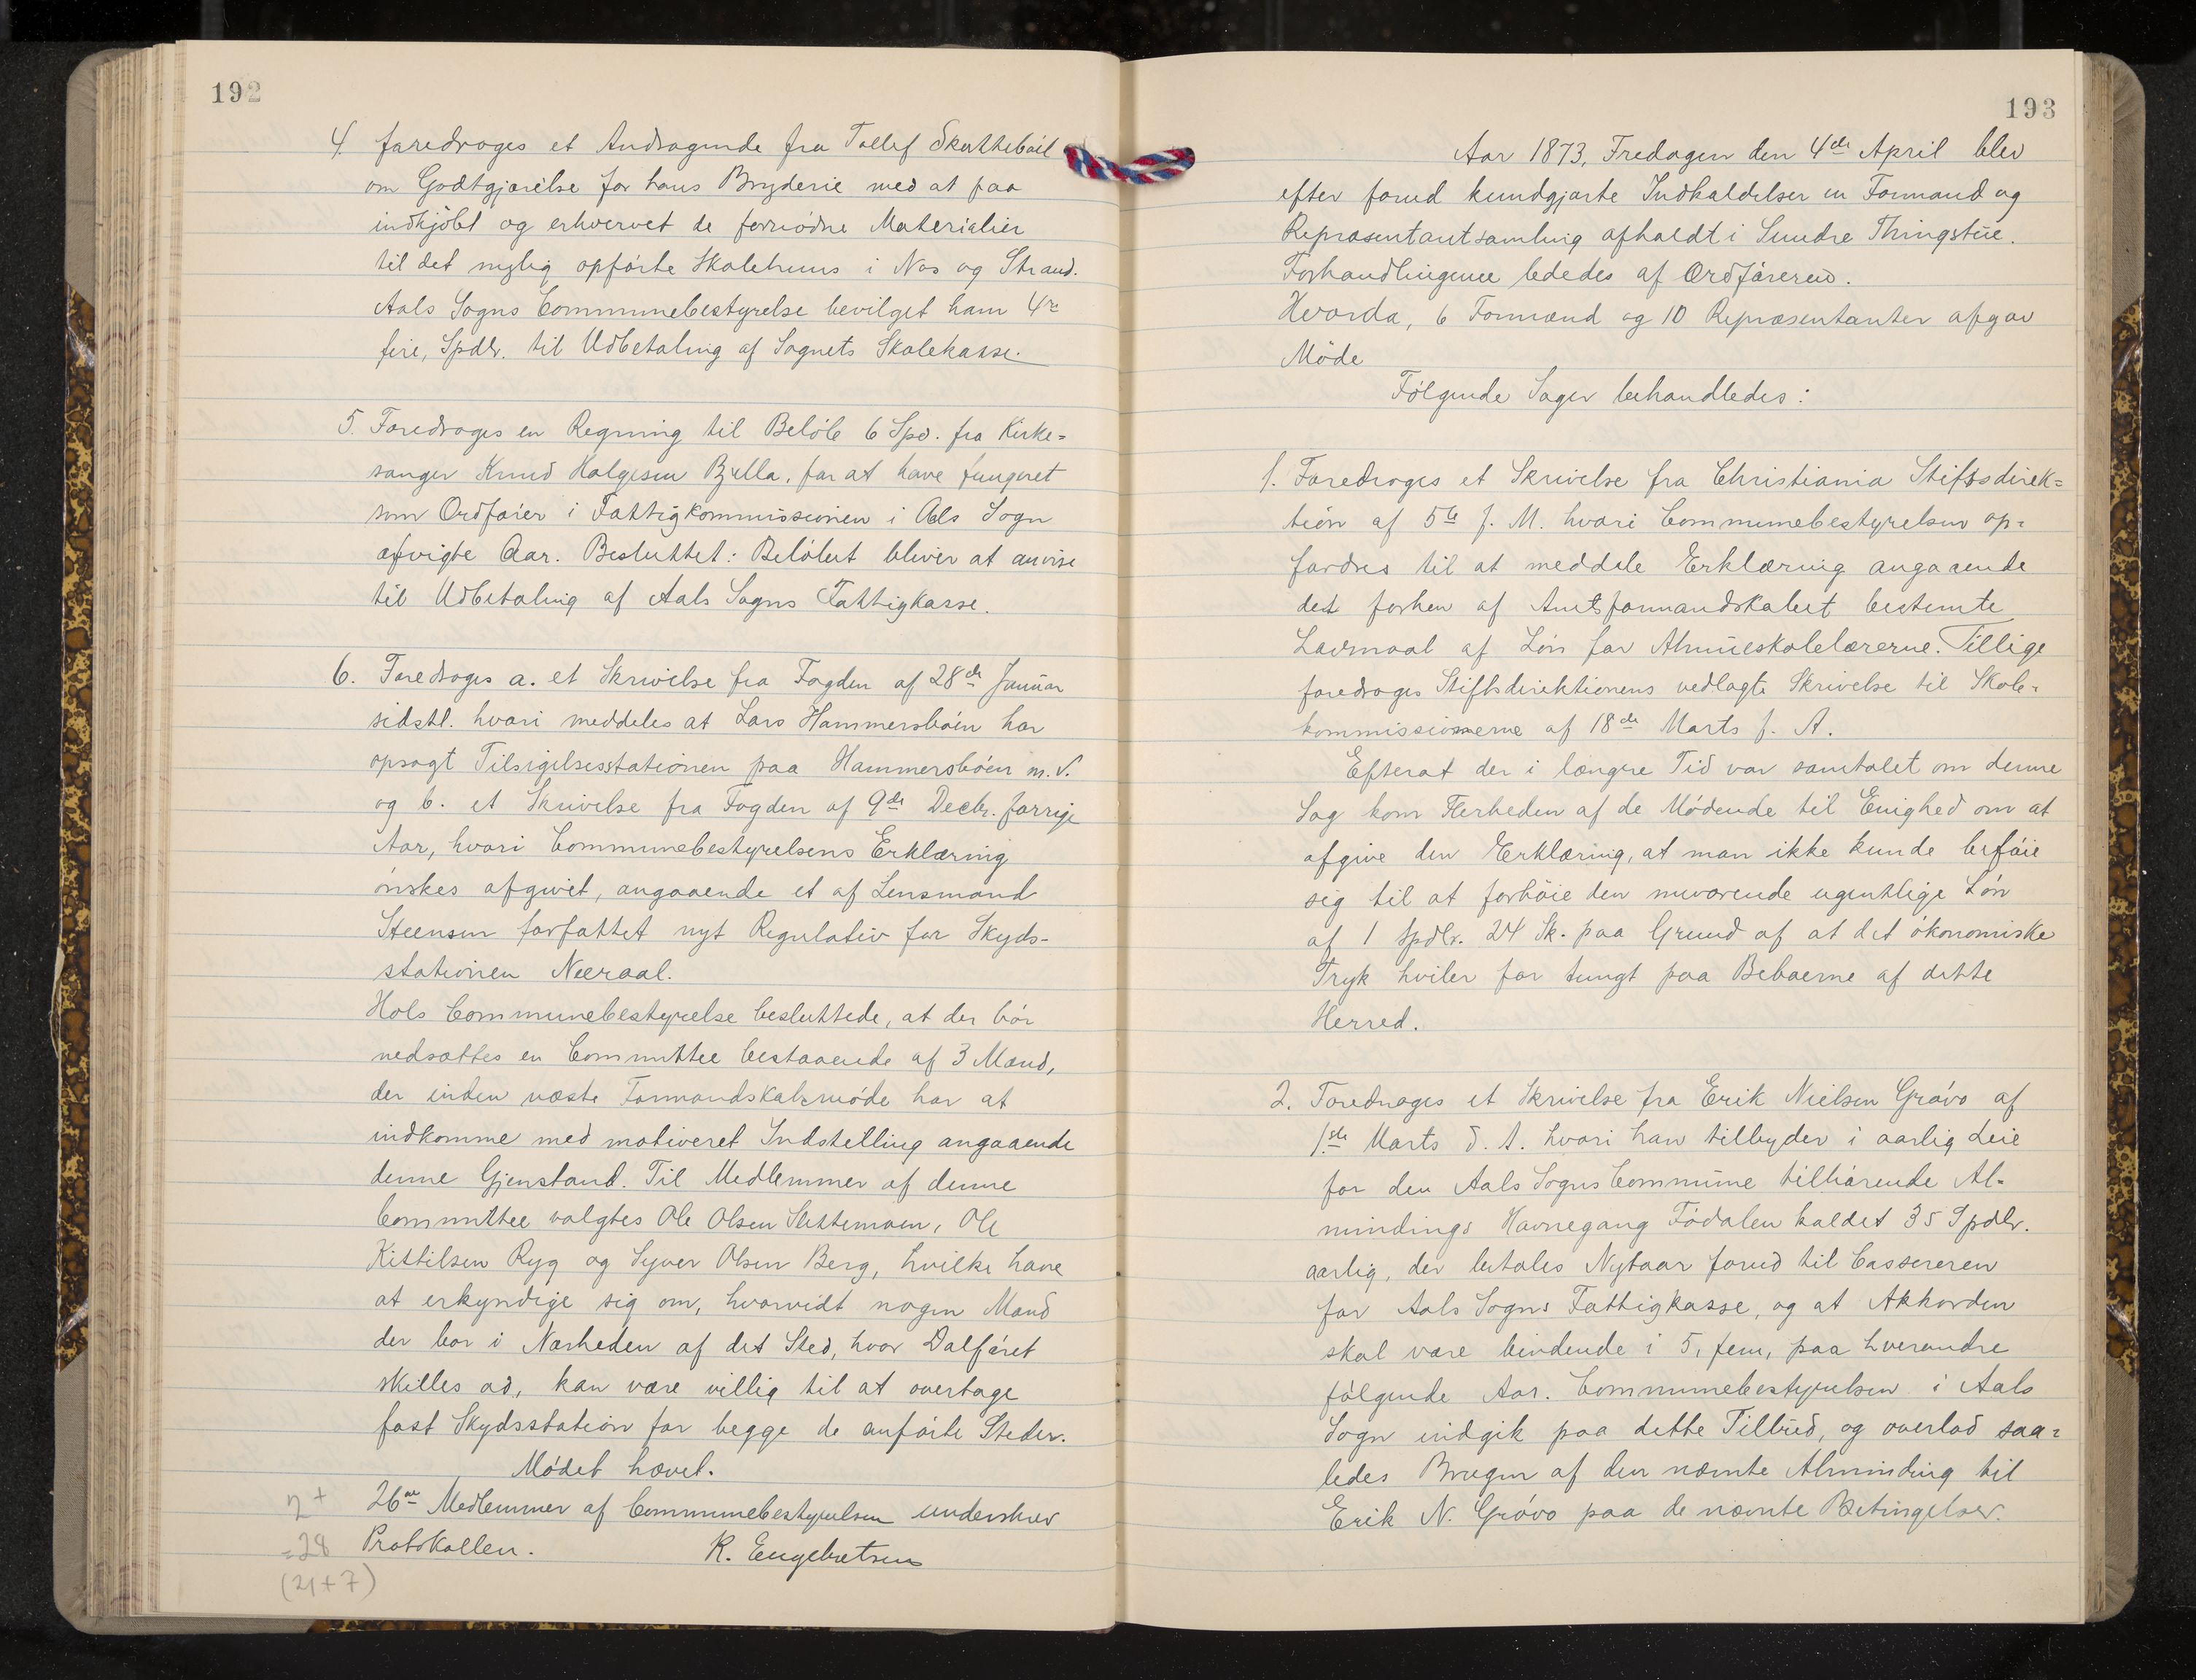 192
4. foredroges et Andragende fra Tollef Skattebøil
om Godtgjørelse for hans Bryderie med at faa
indkjøbt og erhvervet de fornødne Materialier
til det nylig opførte Skolehuus i Nos og Strand.
Aals Sogns Communebestyrelse bevilget ham 4re
fire, Spdlr. til Udbetaling af Sognets Skolekasse.
5. Foredroges en Regning til Beløb 6 Spd. fra Kirke=
sanger Knud Holgesen Bjella, for at have fungeret
som Ordfører i Fattigkommissionen i Aals Sogn
afvigte Aar. Besluttet: Beløbet bliver at anvise
til Udbetaling af Aals Sogns Fattigkasse.
6. Foredroges a. et Skrivelse fra Fogden af 28de Januar
sidstl. hvori meddeles at Lars Hammersbøen har
opsagt Tilsigelsesstationen paa Hammersbøen m.V.
og b. et Skrivelse fra Fogden af 9de Decbr. forrige
Aar, hvori Communebestyrelsens Erklæring
ønskes afgivet, angaaende et af Lensmand
Steensen forfattet nyt Regulativ for Skyds-
stationen Neeraal.
Hols Communebestyrelse besluttede, at der bør
nedsættes en Committee bestaaende af 3 Mænd,
der inden næste Formandskabsmøde har at
indkomme med motiveret Indstilling angaaende
denne Gjenstand. Til Medlemmer af denne
Committee valgtes Ole Olsen Slettemoen, Ole
Kittilsen Ryg og Syver Olsen Berg, hvilke have
at erkyndige sig om, hvorvidt nogen Mand
der bor i Nærheden af det Sted, hvor Dalføret
skilles ad, kan være villig til at overtage
fast Skydsstation for begge de anførte Steder.
Mødet hævet.
26ne Medlemmer af Communebestyrelsen underskrev
Protokollen. R. Engebretsen
2+
=28
(21+7)
193
Aar 1873, Fredagen den 4de April blev
efter forud kundgjorte Indkaldelser en Formand og
Repræsentantsamling afholdt i Sundre Thingstue.
Forhandlingerne lededes af Ordføreren.
Hvorda, 6 Formænd og 10 Repræsentanter afgav
Møde
Følgende Sager behandledes:
1. Foredroges et Skrivelse fra Christiania Stiftsdirek=
tion af 5te f. M. hvori Communebestyrelsen op=
fordres til at meddele Erklæring angaaende
det forhen af Amtsformandskabet bestemte
Lavmaal af Løn for Almueskolelærerne. Tillige
foredroges Stiftsdirektionens vedlagte Skrivelse til Skole=
kommissionerne af 18de Marts f. A.
Efterat der i længre Tid var samtalet om denne
Sag kom Flerheden af de Mødende til Enighed om at
afgive den Erklæring, at man ikke kunde beføie
sig til at forhøie den nuværende ugentlige Løn
af 1 Spdlr. 24 Sk. paa Grund af at det økonomiske
Tryk hviler for tungt paa Beboerne af dette
Herred.
2. Foredroges et Skrivelse fra Erik Nielsen Grøvo af
1ste Marts d. A. hvori han tilbyder i aarlig Leie
for den Aals Sogns Commune tilhørende Al=
mindings Havnegang Fødalen kaldet 35 Spdlr.
aarlig, der betales Nytaar forud til Cassereren
for Aals Sogns Fattigkasse, og at Akkorden
skal være bindende i 5, fem, paa hverandre
følgende Aar. Communebestyrelsen i Aals
Sogn indgik paa dette Tilbud, og overlod saa=
ledes Brugen af den nævnte Alminding til
Erik N. Grøvo paa de nævnte Betingelser.